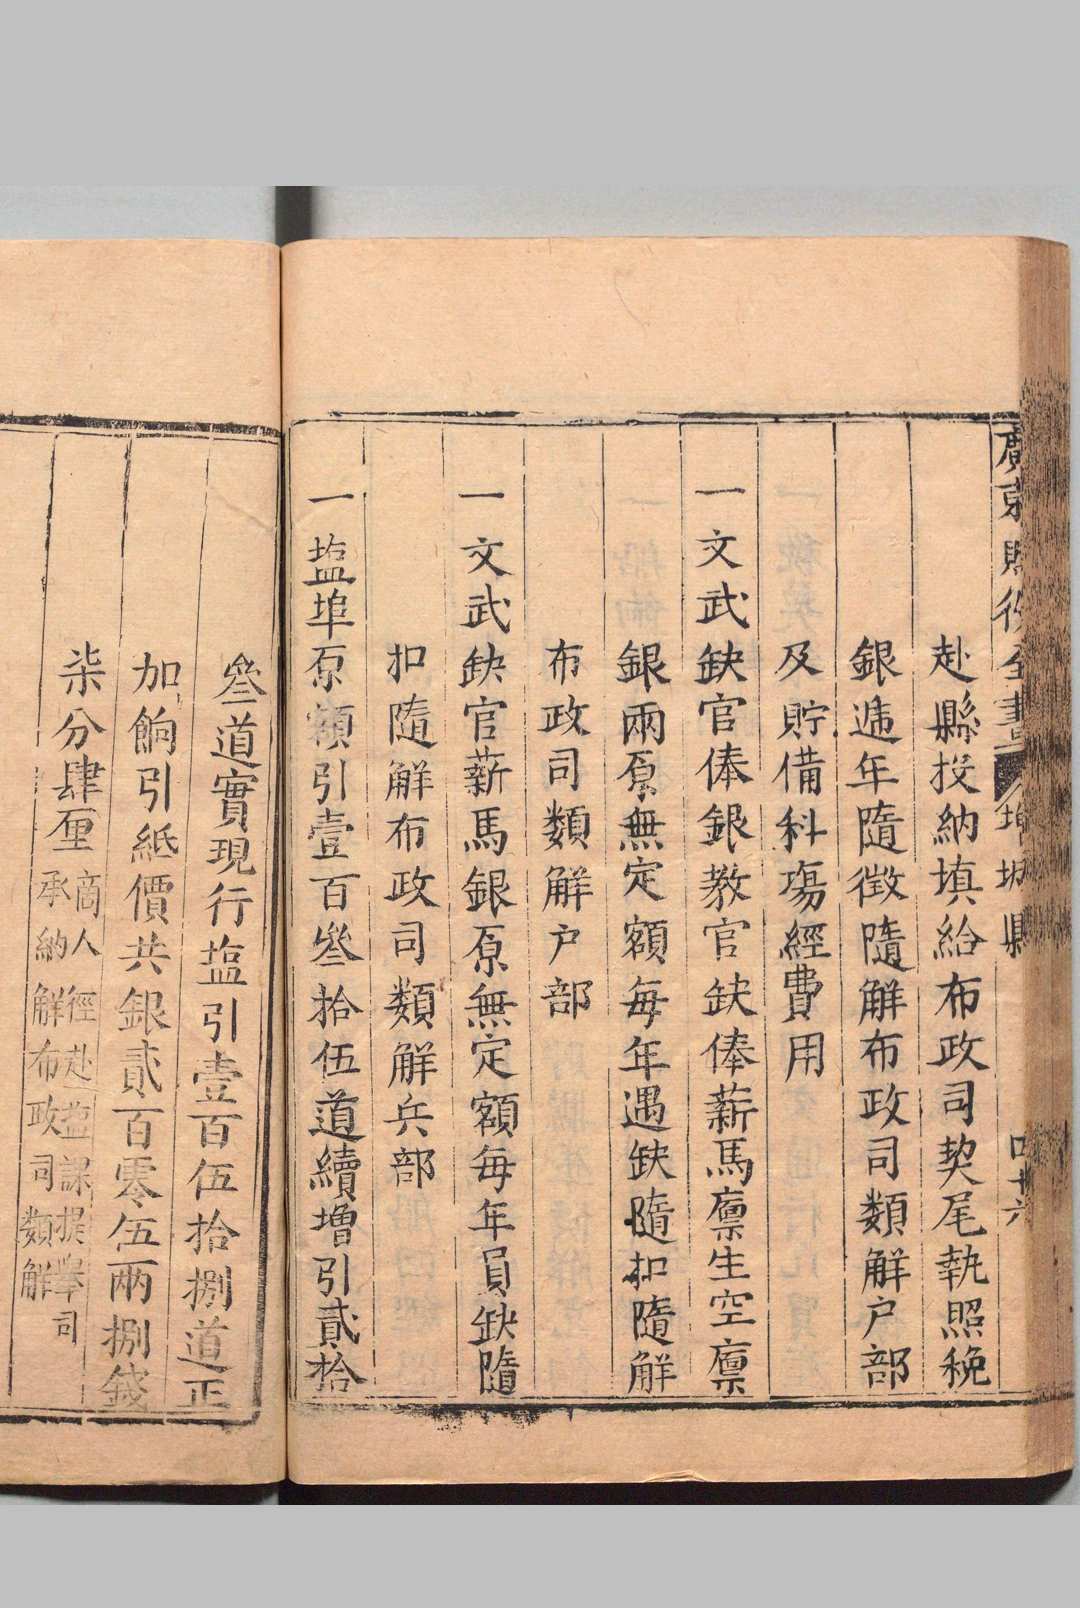 廣東賦役全書
縣
四十六
赴縣投納填給布政司契尾執照稅
銀遞年隨徵隨解布政司類解户部
及貯備科塲經費用
一文武缺官俸銀教官缺俸薪馬廪生空廪
銀兩原無定額每年遇缺隨扣隨解
布政司類解户部
一文武缺官薪馬銀原無定額每年員缺隨
扣隨解布政司類解兵部
一塩埠原額引壹百叄拾伍道續增引貳拾
叄道實現行塩引壹百伍拾捌道正
加餉引紙價共銀貳百零伍兩捌錢
柒分肆厘
商人徑赴塩課提舉司
承納解布政司類解